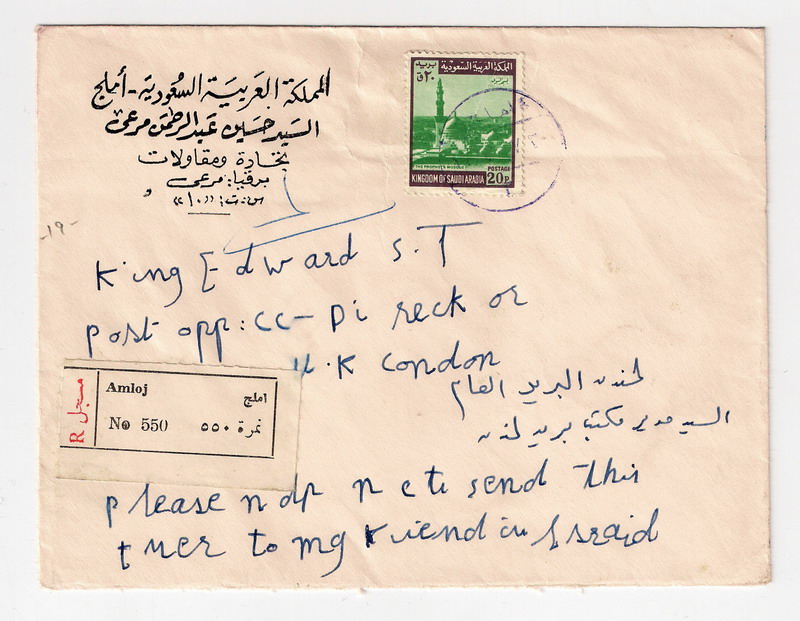 المملكة العربية السعودية - أملج
السيد حسين عبد الرحمن مرعي
تجارة ومقاولات
برقيا: مرعي
س.ت: «١٠»
المملكة العربية السعودية
بريد
٢٠ ق
THE PROPHET'S MOSQUE
POSTAGE
KINGDOM OF SAUDI ARABIA 20 P.
-١٩-
King Edward S.T
post opp: CC- Di reck or
U.K London
لندن البريد العام
السيد مدير مكتب بريد لندن
R مسجل
Amloj املج
No 550 نمرة ٥٥٠
please send this
to my friend in